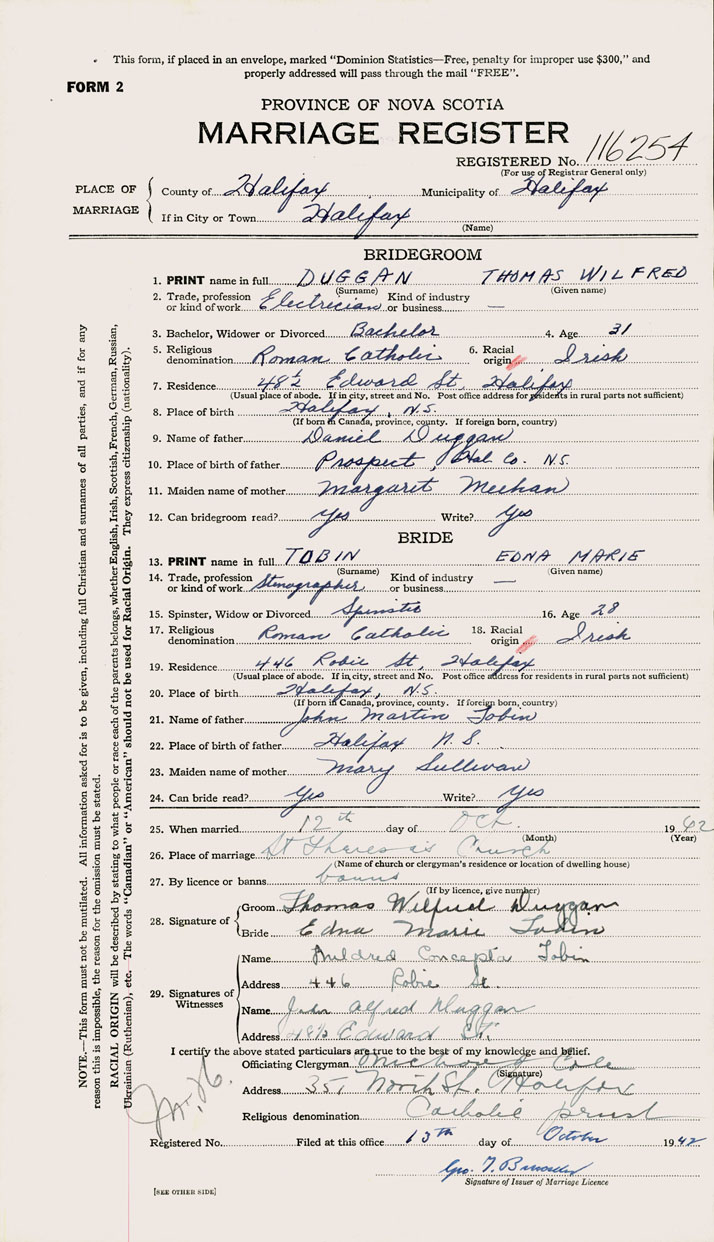 This form, if placed in an envelope, marked "Dominion Statistics—Free, penalty for improper use $300," and
properly addressed will pass through the mail "FREE".
FORM 2
PROVINCE OF NOVA SCOTIA
MARRIAGE REGISTER
REGISTERED No. 116254
(For use of Registrar General only)
PLACE OF MARRIAGE
County of Halifax Municipality of Halifax
If in City or Town Halifax
(Name)
BRIDEGROOM
1. PRINT name in full DUGGAN THOMAS WILFRED
(Surname) (Given name)
2. Trade, profession or kind of work Electrician Kind of industry or business —
3. Bachelor, Widower or Divorced Bachelor 4. Age 31
5. Religious denomination Roman Catholic 6. Racial origin Irish
7. Residence 48½ Edward St, Halifax
(Usual place of abode. If in city, street and No. Post office address for residents in rural parts not sufficient)
8. Place of birth Halifax, N.S.
(If born in Canada, province, county. If foreign born, country)
9. Name of father Daniel Duggan
10. Place of birth of father Prospect, Hal. Co. N.S.
11. Maiden name of mother Margaret Meehan
12. Can bridegroom read? Yes Write? Yes
BRIDE
13. PRINT name in full TOBIN EDNA MARIE
(Surname) (Given name)
14. Trade, profession or kind of work Stenographer Kind of industry or business —
15. Spinster, Widow or Divorced Spinster 16. Age 28
17. Religious denomination Roman Catholic 18. Racial origin Irish
19. Residence 446 Robie St, Halifax
(Usual place of abode. If in city, street and No. Post office address for residents in rural parts not sufficient)
20. Place of birth Halifax, N.S.
(If born in Canada, province, county. If foreign born, country)
21. Name of father John Martin Tobin
22. Place of birth of father Halifax N.S.
23. Maiden name of mother Mary Sullivan
24. Can bride read? Yes Write? Yes
25. When married 12th day of Oct. 1942
(Month) (Year)
26. Place of marriage St Theresa's Church
(Name of church or clergyman's residence or location of dwelling house)
27. By licence or banns banns
(If by licence, give number)
28. Signature of
Groom Thomas Wilfred Duggan
Bride Edna Marie Tobin
29. Signatures of Witnesses
Name Mildred Concepta Tobin
Address 446 Robie St.
Name John Alfred Duggan
Address 48½ Edward St.
I certify the above stated particulars are true to the best of my knowledge and belief.
Officiating Clergyman Michael Cole
(Signature)
Address 351 North St. Halifax
Religious denomination Catholic priest
Registered No. Filed at this office 13th day of October 1942
Geo. T.
Signature of Issuer of Marriage Licence
[SEE OTHER SIDE]
NOTE.—This form must not be mutilated. All information asked for is to be given, including full Christian and surnames of all parties, and if for any
reason this is impossible, the reason for the omission must be stated.
RACIAL ORIGIN will be described by stating to what people or race each of the parents belongs, whether English, Irish, Scottish, French, German, Russian,
Ukrainian (Ruthenian), etc. The words "Canadian" or "American" should not be used for Racial Origin. They express citizenship (nationality).